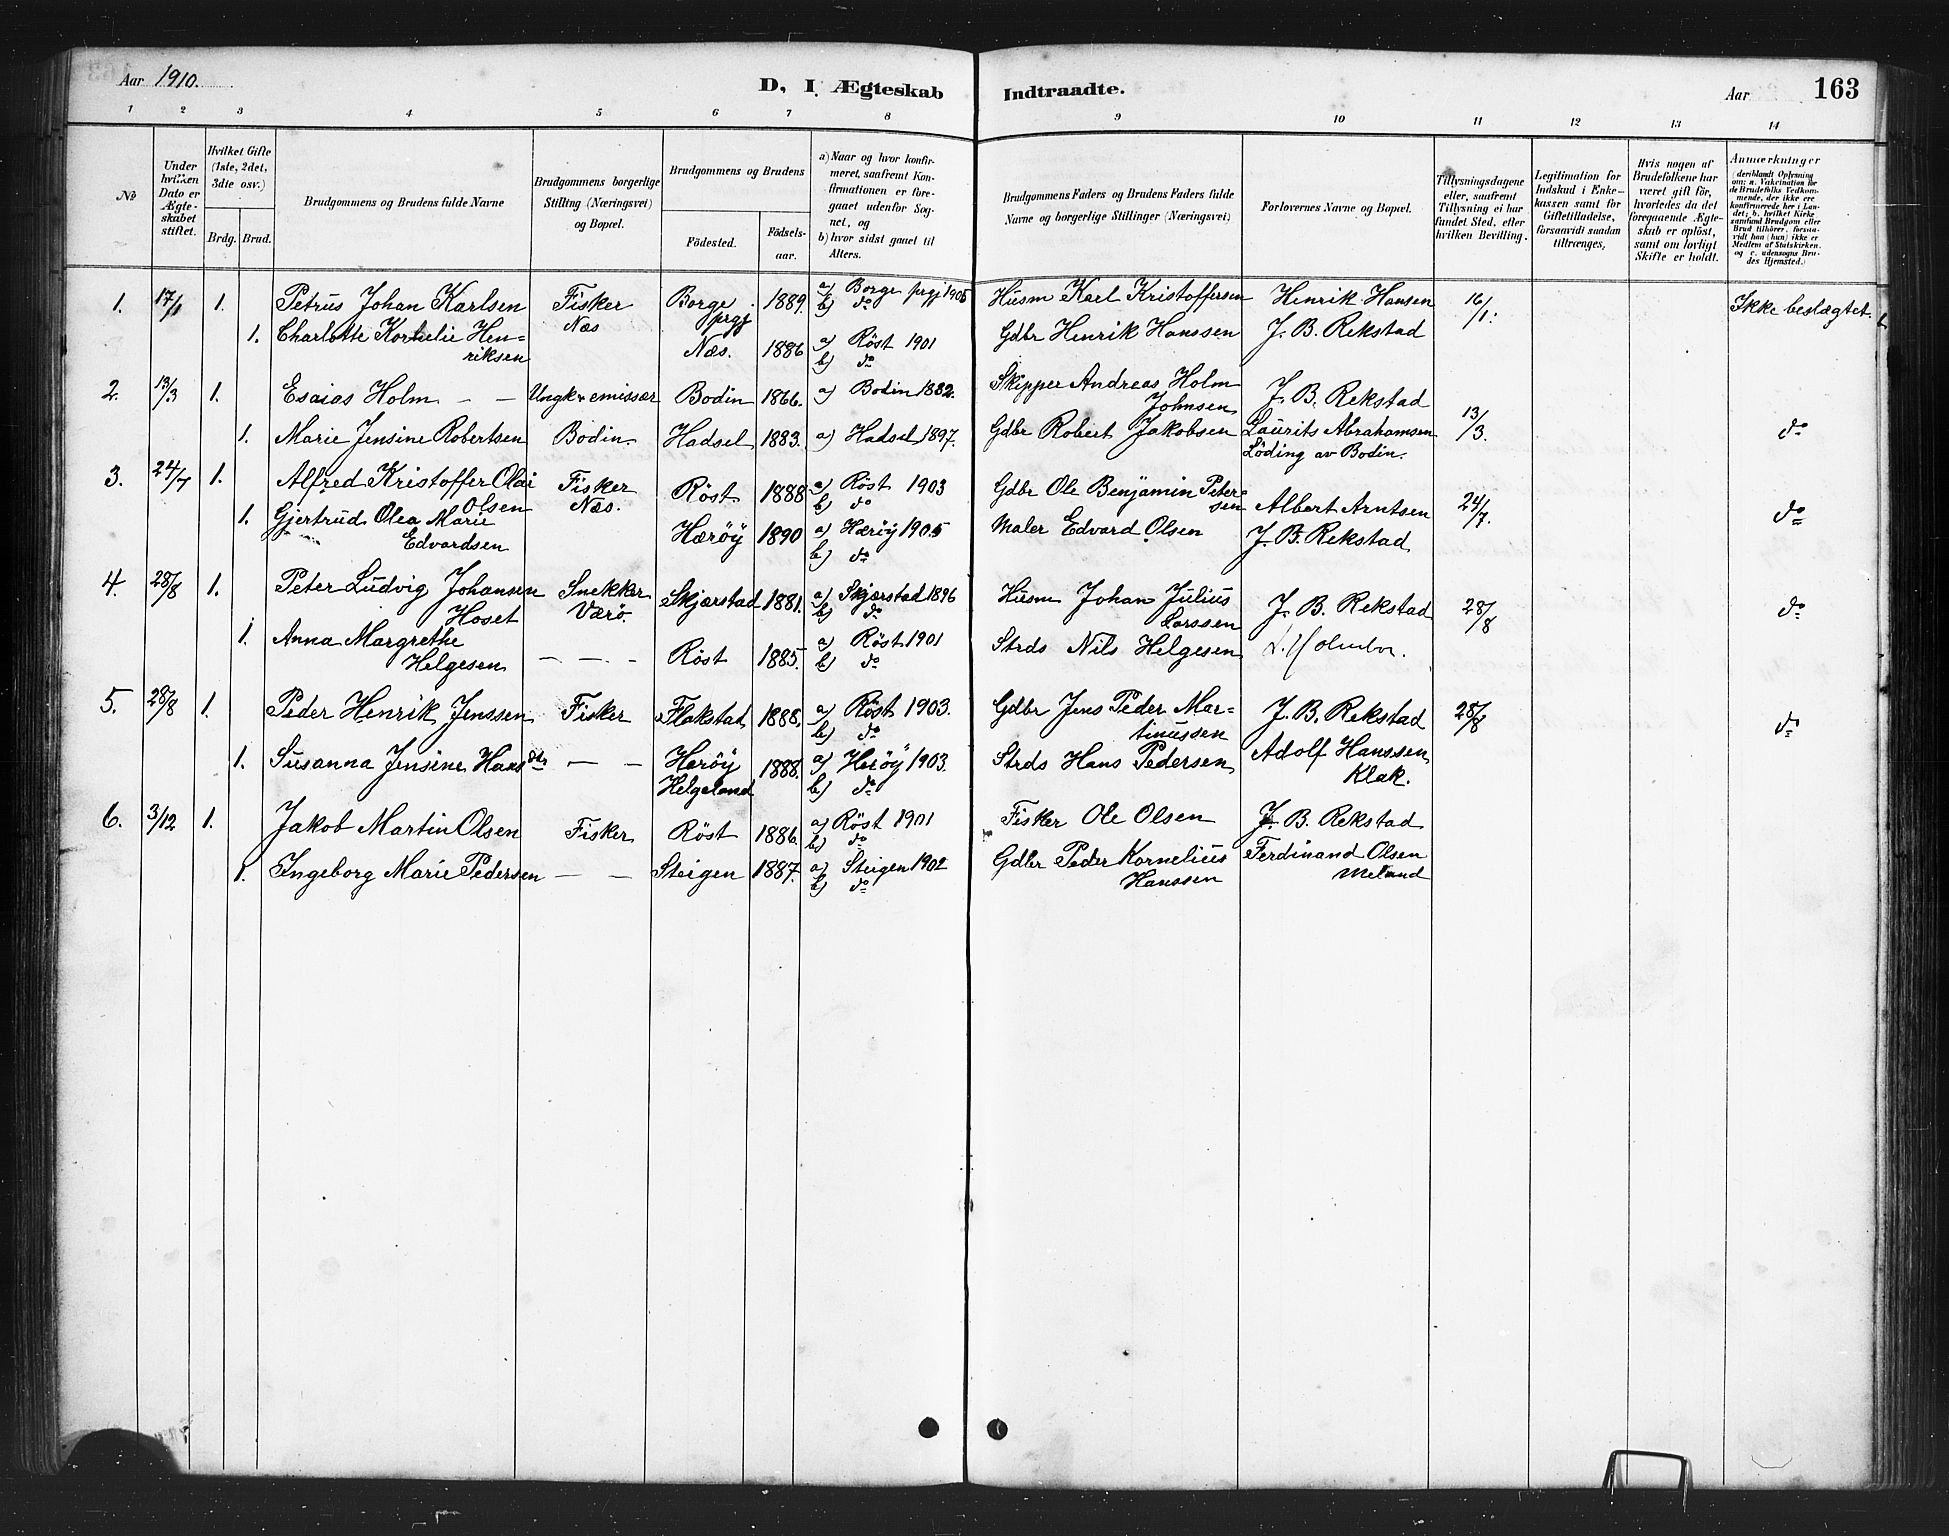 Aar 1910.
D, I Ægteskab
Indtraadte.
Aar 163
1 2 3 4 5 6 7 8
9 10 11 12 13 14
No
Under hvilken Dato er Ægte-skabet stiftet.
Hvilket Gifte (1ste, 2det, 3die osv.)
Brdg. Brud.
Brudgommens og Brudens fulde Navne
Brudgommens borgerlige Stilling (Næringsvei) og Bopæl.
Brudgommens og Brudens
Födested.
Födsels-aar.
a) Naar og hvor konfir-meret, saafremt Kon-firmationen er fore-gaaet udenfor Sog-net, og
b) hvor sidst gaaet til Alters.
Brudgommens Faders og Brudens Faders fulde Navne og borgerlige Stillinger (Næringsvei)
Forlovernes Navne og Bopæl.
Tillysningsdagene eller, saafremt Tillysning ei har fundet Sted, efter hvilken Bevilling.
Legitimation for Indskud i Enke-kassen samt for Giftetilladelse, forsaavidt saadan tiltrænges,
Hvis nogen af Brudefolkene har været gift för, hvorledes da det foregaaende Ægte-skab er oplöst, samt om lovligt Skifte er holdt.
Anmærkninger (deriblandt Oplysning om: a. Vakcination for de Brudefolks Vedkom-mende, der ikke ere konfirmerede her i Lan-det; b. hvilket Kirke-samfund Brudgom eller Brud tilhörer, forsaa-vidt han (hun) ikke er Medlem af Statskirken. og c. udensogns Bru-des Hjemsted.)
1. 17/1 1. Petrus Johan Karlsen Fisker Næs Borge prgj 1889. a) Borge prgj 1905 b) do Husm Karl Kristoffersen Henrik Hansen 16/1. Ikke beslægtet.
1. Charlotte Kornelie Hen=riksen Næs. 1886 a) Röst 1901 b) do Gdbr Henrik Hanssen J. B. Rekstad
2. 13/3 1. Esaias Holm — — Ungk. emissær Bodin 1866. a) Bodin 1882. Skipper Andreas Holm Johnsen J. B. Rekstad 13/3.
1. Marie Jensine Robertsen Bodin. Hadsel 1883. a) Hadsel 1897. Gdbr Robert Jakobsen Laurits Abrahamsen Löding av Bodin. do
3. 24/7 1. Alfred Kristoffer Olai Olsen Fisker Næs. Röst 1888 a) Röst 1903 b) do Gdbr Ole Benjamin Peter=sen Albert Arntsen 24/7. do
1. Gjertrud Olea Marie Edvardsen Hæröy 1890 a) Hæröy 1905 b) do Maler Edvard Olsen J. B. Rekstad
4. 28/8 1. Peter Ludvig Johansen Hoset Snekker Værö. Skjærstad 1881. a) Skjærstad 1896 b) do Husm Johan Julius Larssen J. B. Rekstad 28/8 do
1. Anna Margrethe Helgesen — — - Röst 1885. a) Röst 1901 b) do Strds Nils Helgesen
5. 28/8 1. Peder Henrik Jenssen Fisker Flakstad 1888. a) Röst 1903. b) do Gdbr Jens Peder Mar=tinussen J. B. Rekstad 28/8 do
1. Susanna Jensine Hansdtr — — Heröy Helgeland 1888. a) Heröy 1903. b) do Strds Hans Pedersen Adolf Hanssen Klak.
6. 3/12 1. Jakob Martin Olsen Fisker Röst 1886. a) Röst 1901 b) do Fisker Ole Olsen J. B. Rekstad
1. Ingeborg Marie Pedersen — — Steigen 1887. a) Steigen 1902 b) do Gdbr Peder Kornelius Hanssen Ferdinand Olsen Meland